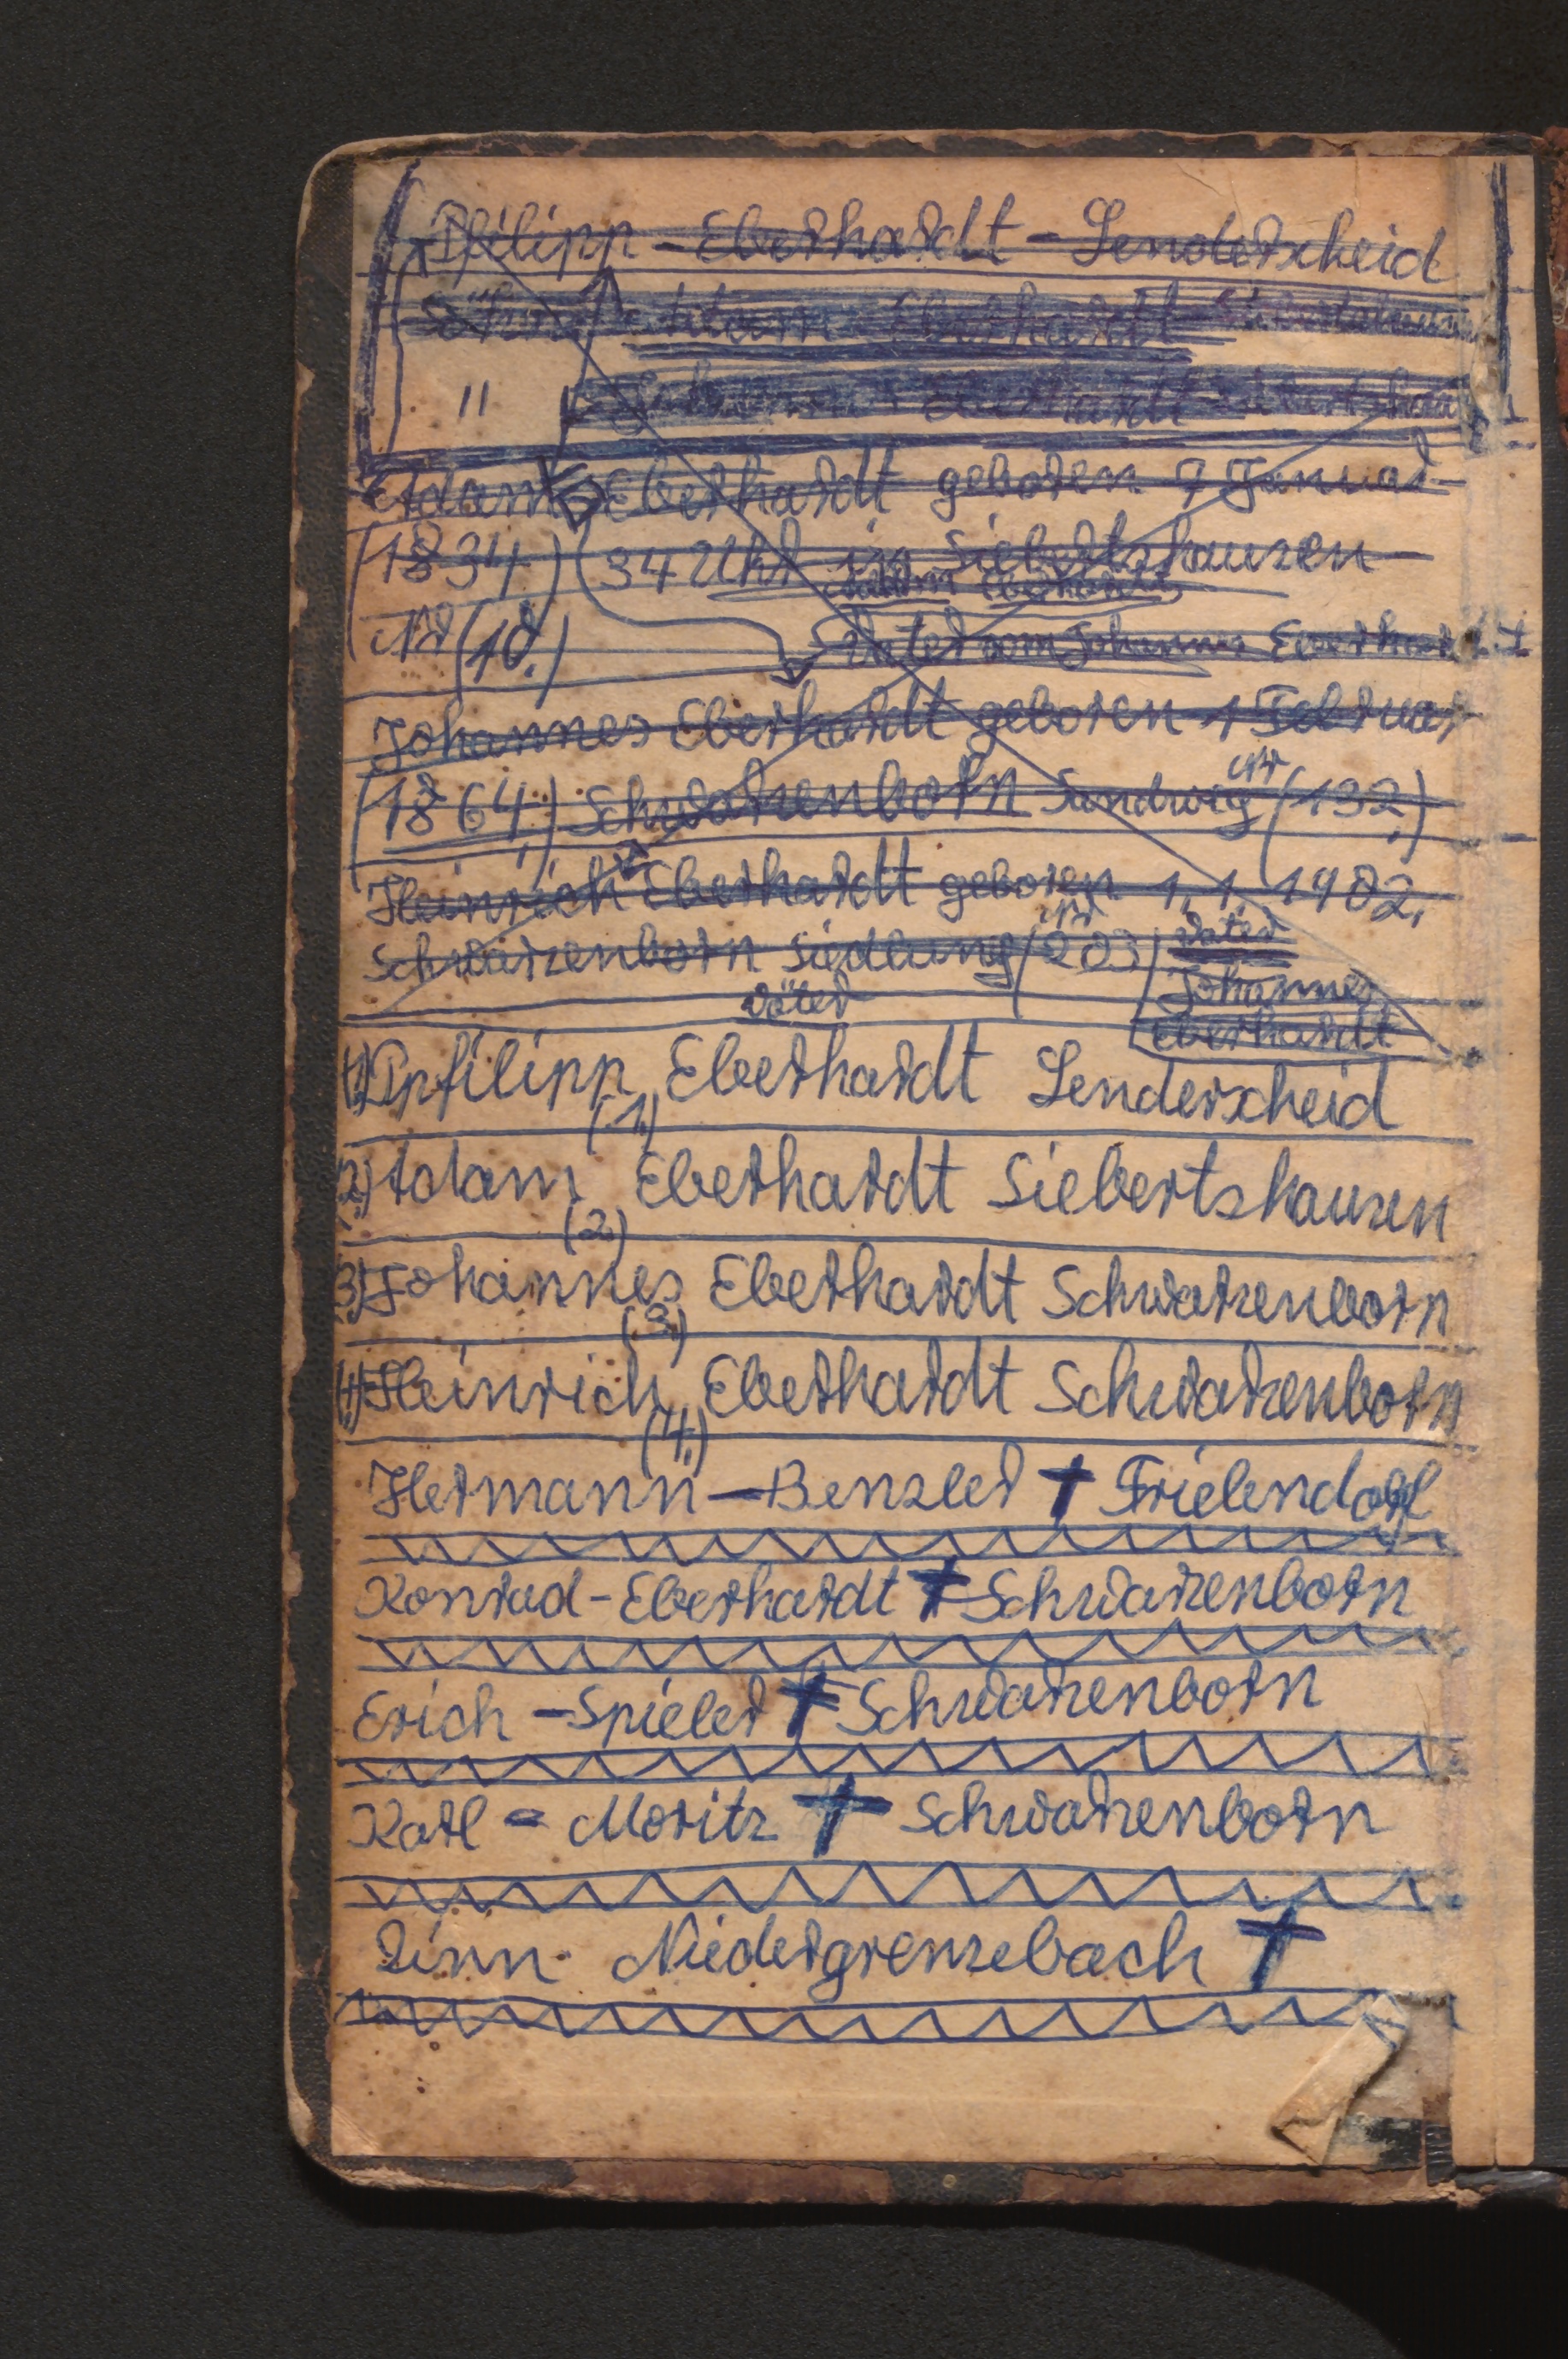 Pfilipp - Eberhardt - Lenderscheid
Adam Eberhardt
"
Eberhardt
Adam Eberhardt geboren 7 Januar
(1834) (34 Uhr in Siebertshausen
Adam Eberhardt
Nr (10.) Vater vom Johannes Eberhardt
Johannes Eberhardt geboren 1 Februar
(1864.) Schwarzenborn Landwig Nr (132.)
Heinrich Eberhardt geboren 1.1.1902.
Schwarzenborn Siedlung Nr (203) Vater
Johannes
Eberhardt
Väter
(1.) Ppfilipp (1.) Eberhardt Lenderscheid
(2.) Adam (2.) Eberhardt Siebertshausen
(3.) Johannes (3.) Eberhardt Schwarzenborn
(4.) Heinrich (4.) Eberhardt Schwarzenborn
Hermann - Benzler † Frielendorf
Konrad - Eberhardt † Schwarzenborn
Erich - Spieler † Schwarzenborn
Karl = Moritz † Schwarzenborn
Zinn. Niedergrenzebach †